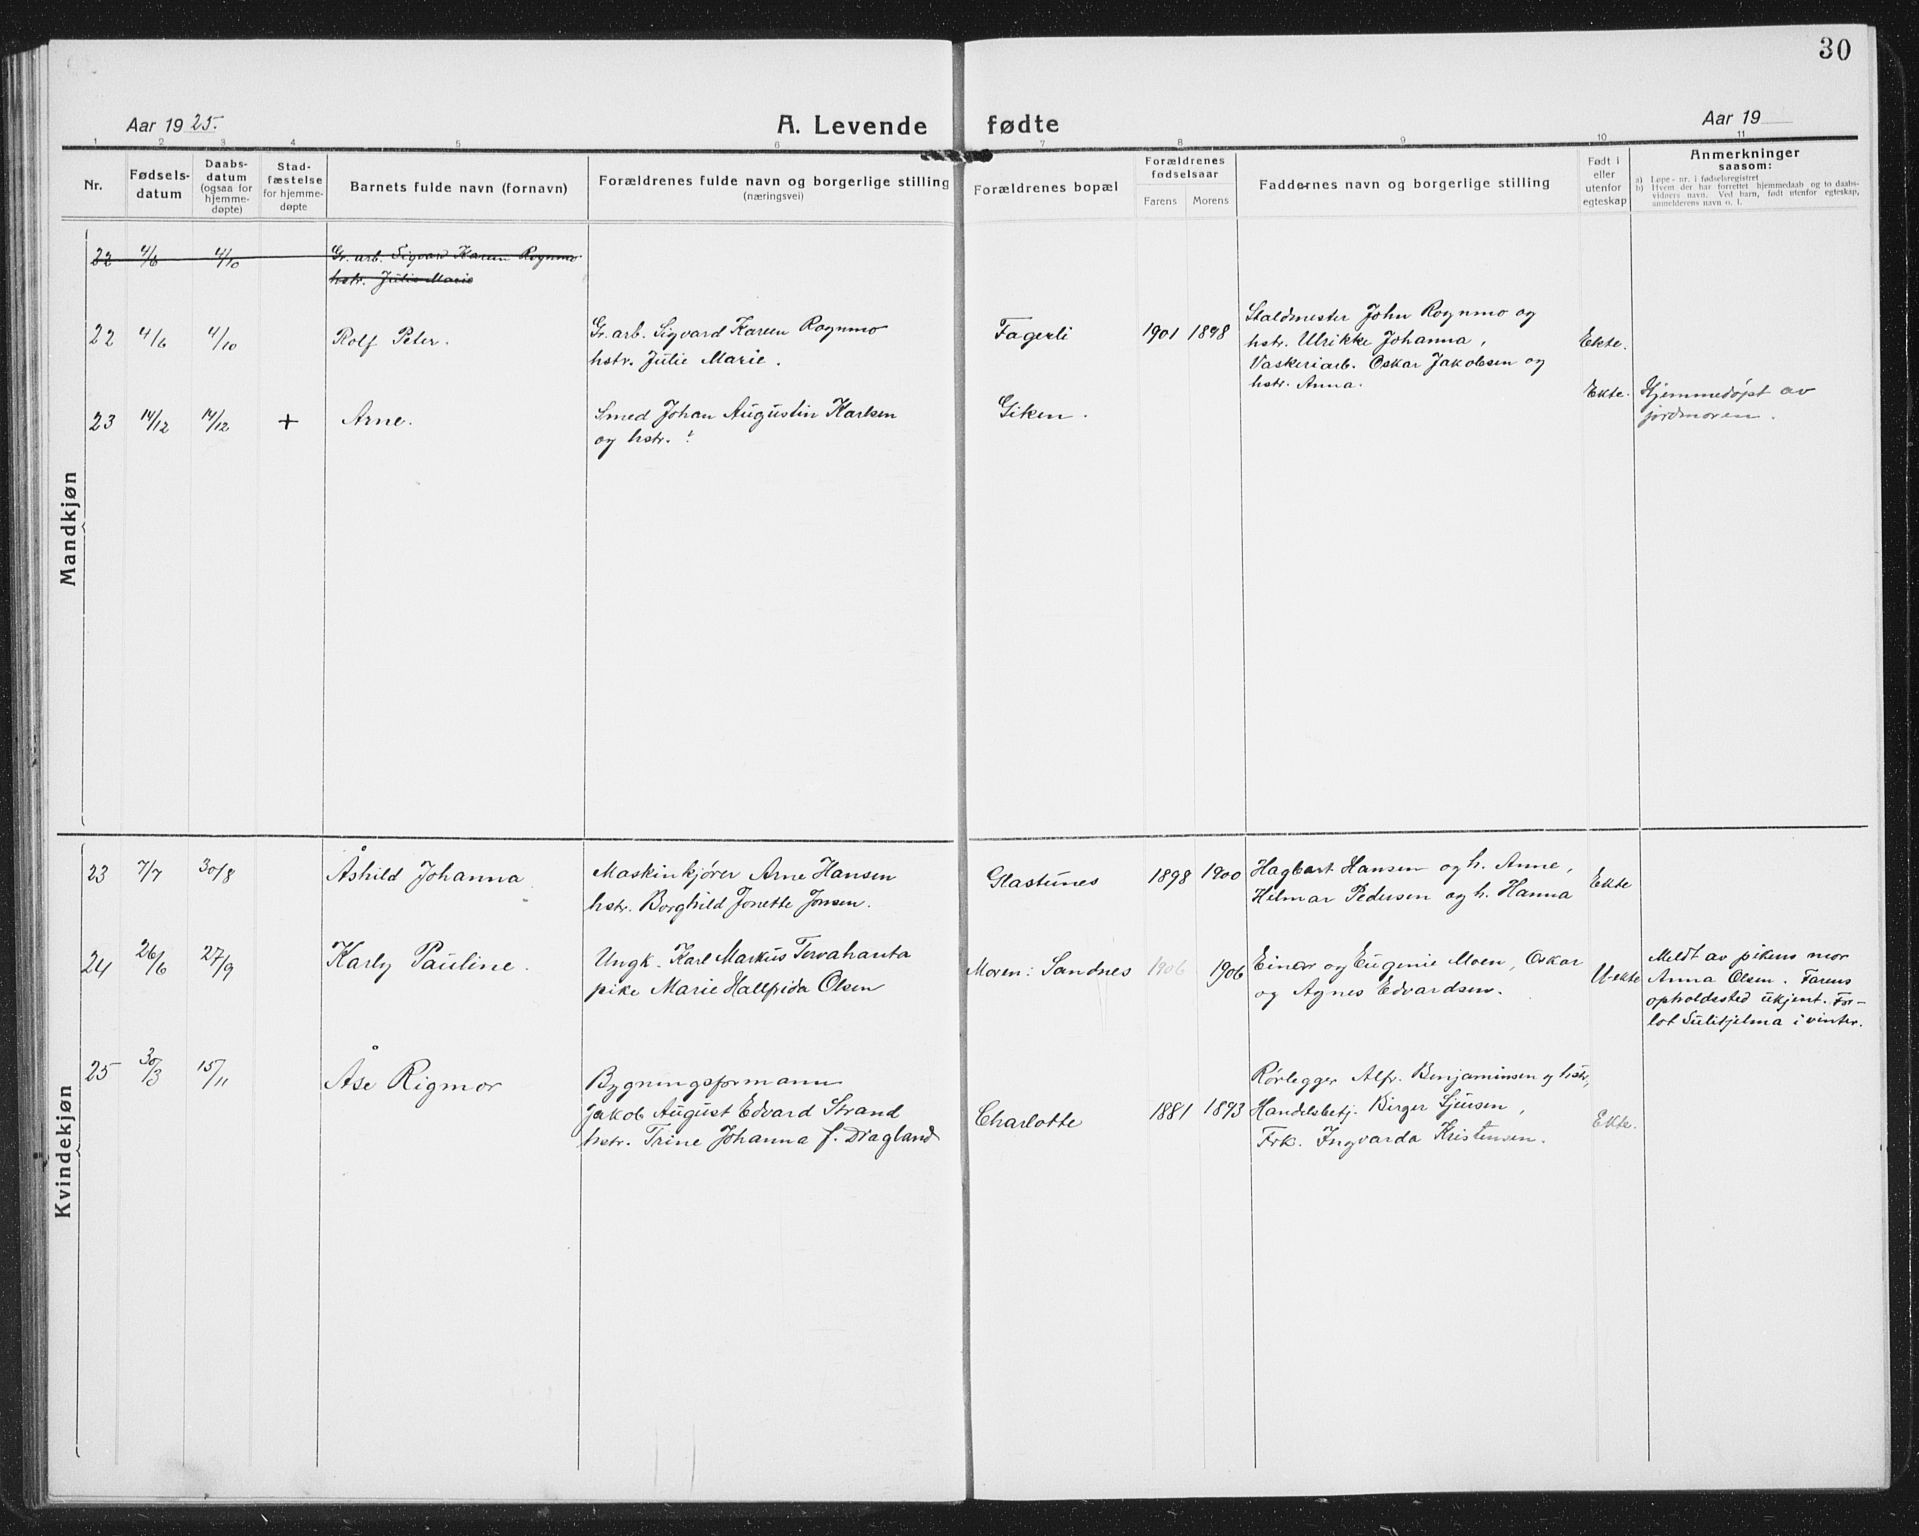 30
Aar 1925.
A. Levende fødte
Aar 19
1 2 3 4 5 6 7 8 9 10 11
Nr.
Fødsels-
datum
Daabs-
datum
(ogsaa for
hjemme-
døpte)
Stad-
fæstelse
for hjemme-
døpte
Barnets fulde navn (fornavn)
Forældrenes fulde navn og borgerlige stilling
(næringsvei)
Forældrenes bopæl
Forældrenes
fødselsaar
Farens Morens
Faddernes navn og borgerlige stilling
Født i
eller
utenfor
egteskap
Anmerkninger
saasom:
a) Løpe-nr. i fødselsregistret
b) Hvem der har forrettet hjemmedaab og to daabs-
vidners navn. Ved barn, født utenfor egteskap,
anmelderens navn o. l.
Mandkjøn
22 4/6 4/10 Gr. arb. Sigvard Kareen Rognmo
hstr. Julie Marie
22 4/6 4/10 Rolf Peter.
Gr. arb. Sigvard Kareen Rognmo
hstr. Julie Marie.
Fagerli 1901 1898
Staldmester John Rognmo og
hstr. Ulrikke Johanna,
Vaskeriarb. Oskar Jakobsen og
hstr. Anna.
Ekte.
23 14/12 14/12 + Arne.
Smed Johan Augustin Karlsen
og hstr. ?
Giken.
Ekte.
Hjemmedøpt av
jordmoren.
Kvindekjøn
23 7/7 30/8 Åshild Johanna
Maskinkjører Arne Hansen
hstr. Borghild Jonette Jonsen.
Glastunes 1898 1900
Hagbart Hansen og h. Anne,
Hilmar Pedersen og h. Hanna
Ekte
24 26/6 27/9 Karly Pauline.
Ungk. Karl Markus Tervahanta
pike Marie Hallfrida Olsen
Moren: Sandnes 1906 1906
Einar og Eugenie Moen, Oskar
og Agnes Edvardsen.
Uekte
Meldt av pikens mor
Anna Olsen. Farens
opholdssted ukjent. For-
lot Sulitjelma i vinter.
25 30/3 15/11 Åse Rigmor
Bygningsformann
Jakob August Edvard Strand
hstr. Trine Johanna f. Dragland
Charlotte 1881 1893
Rørlegger Alfr. Benjaminsen og hstr,
Handelsbetj. Birger
Frk. Ingvarda Kristensen.
Ekte.